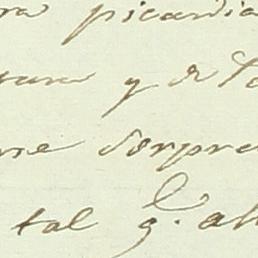 ra picardia
y de To
me sorpre
tal q.e al